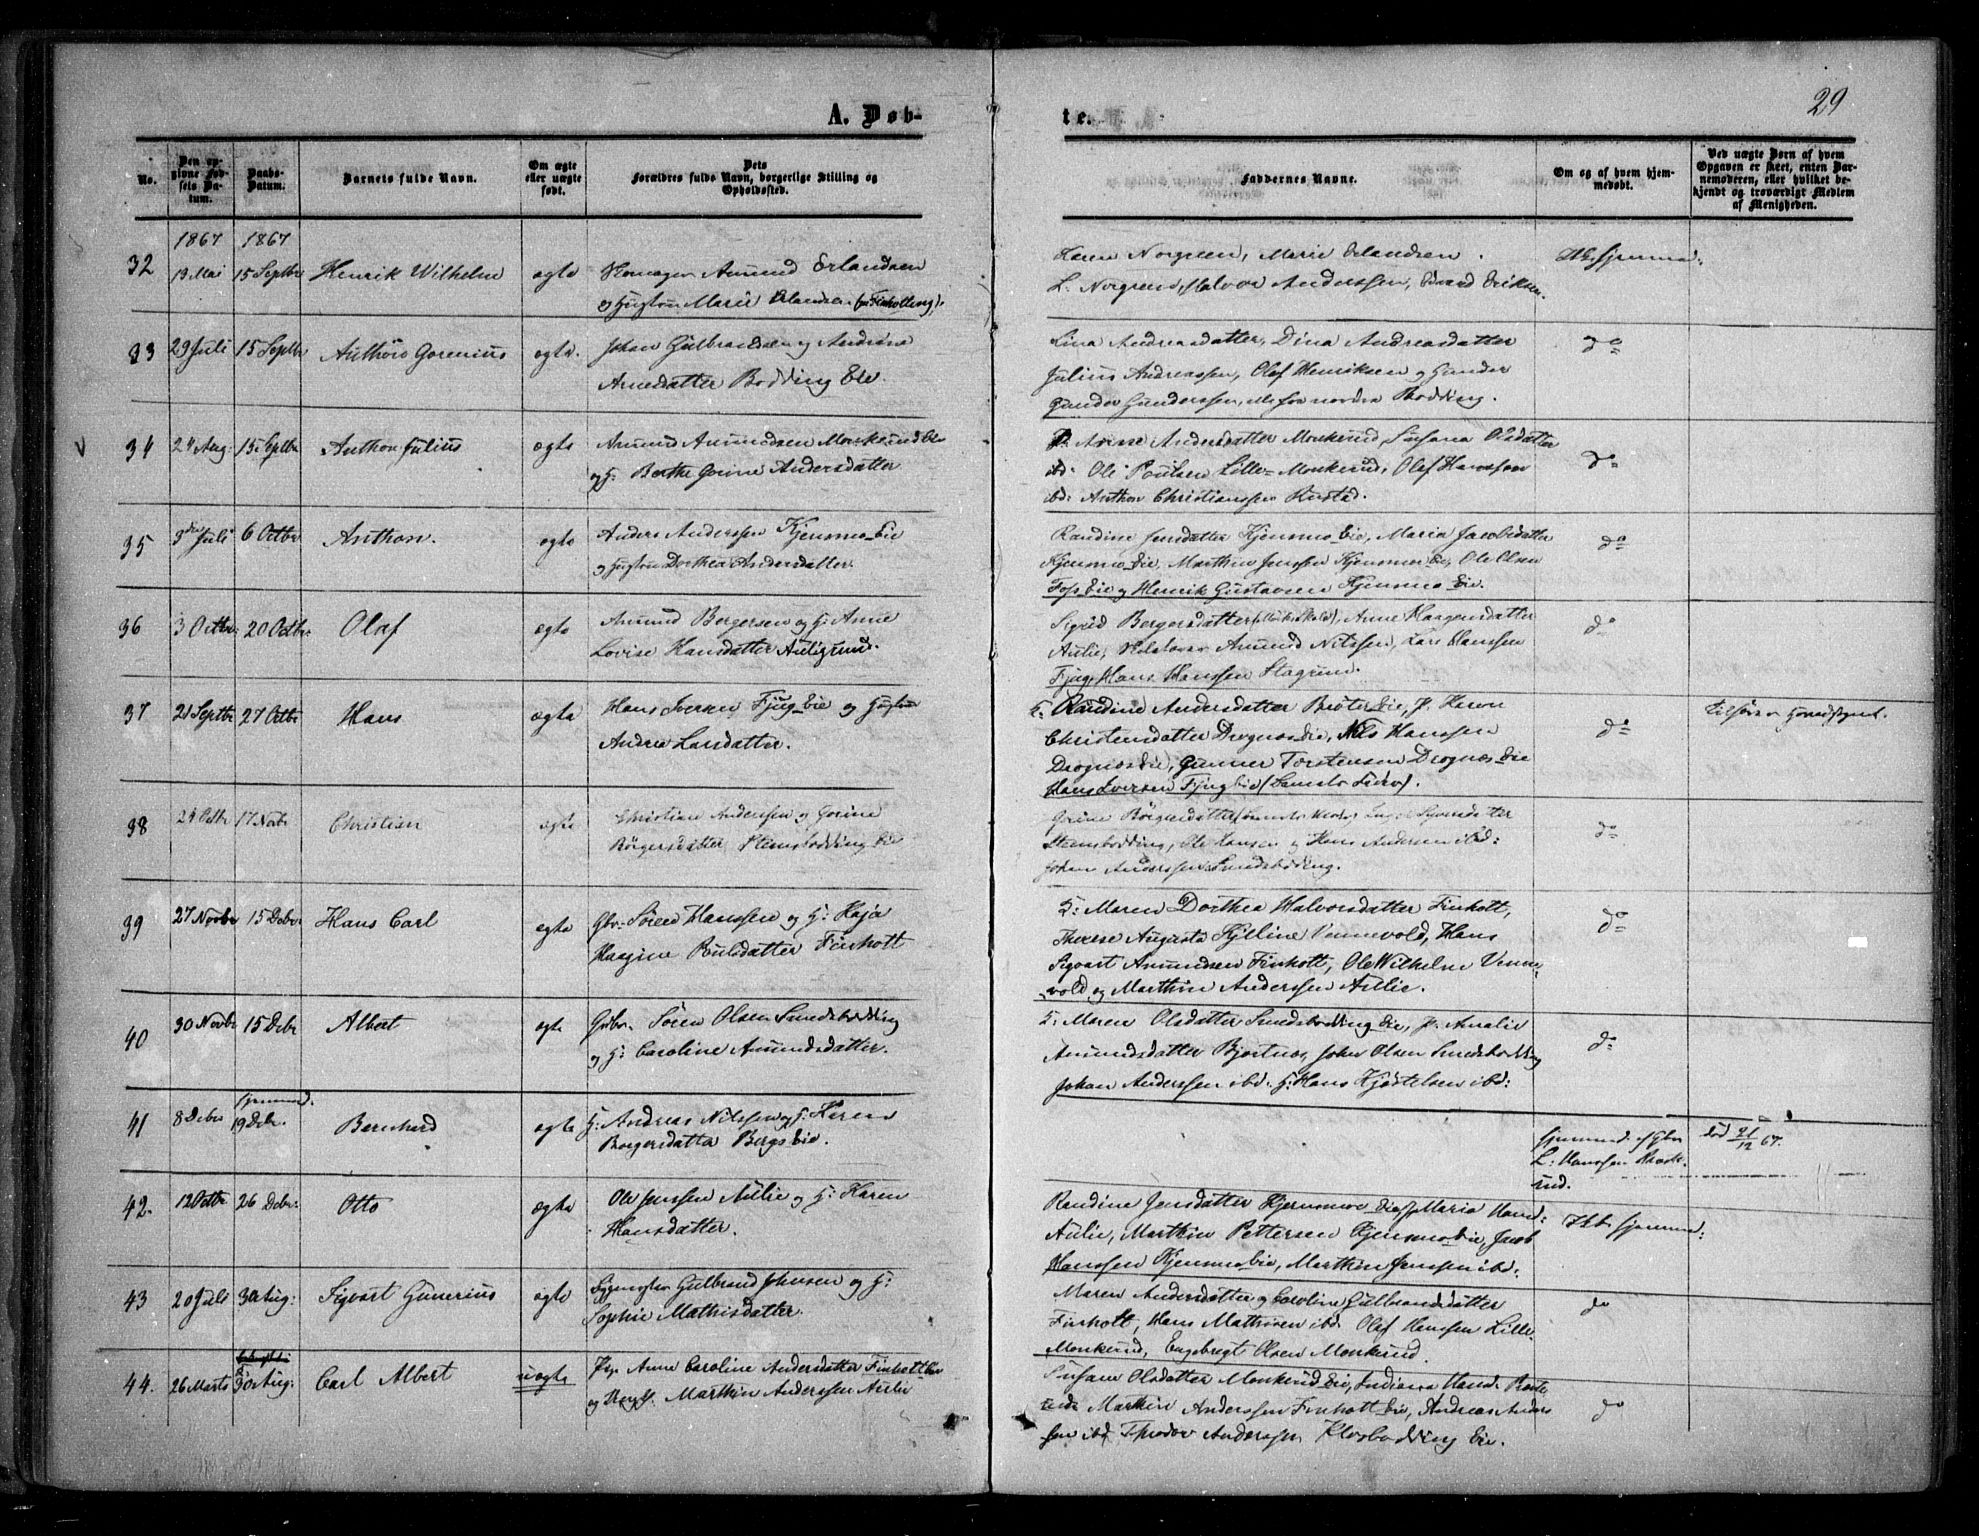 A. Døb-
te.
29
No.
Den op-
givne Fød-
sels Da-
tum.
Daabs-
Datum.
Barnets fulde Navn.
Om ægte
eller uægte
født.
Dets
Forældres fulde Navn, borgerlige Stilling og
Opholdssted.
Faddernes Navne.
Om og af hvem hjem-
medøbt.
Ved uægte Børn af hvem
Opgaven er skeet, enten Bar-
nemoderen, eller hvilket be-
kjendt og troværdigt Medlem
af Menigheden.
1867 1867
32 13 Mai 15 Septbr Henrik Wilhelm ægte
Amund Erlandsen
og Hustru Marie Erlandsen
Karen Norgreen, Marie Erlandsen
L. Norgreen, Halvor Andersen, Edvard Eriksen.
33 29 Juli 15 Septbr Anthon Gorenius ægte.
Johan Gulbrandsen og Andrine
Arnesdatter Bodding Eie.
Lina Andreasdatter, Dina Andreasdatter
Julius Andreassen, Olaf Henriksen og Gunder
Gunderssen, alle fra nordre Bodding.
do
34 24 Aug: 15 Septbr Anthon Julius ægte
Amund Amundsen Monkerud Eie
og H: Berthe Gorine Andersdatter
Anne Andersdatter Monkerud, Susana Olsdatter
ibd: Ole Poulsen Lille-Monkerud, Olaf Hanssen
ibd: Anthon Christianssen Rustad.
do
35 3die Juli 6 Octbr Anthon. ægte
Anders Anderssen Kjensmo Eie
og Hustru Dorthea Andersdatter.
Randine Jensdatter Kjensmo Eie, Maria Jacobsdatter
Kjensmo Eie, Marthin Jenssen Kjensmo Eie, Ole Olsen
Foss Eie og Henrik Gustavsen Kjensmo Eie.
do
36 3 Octbr. 20 Octbr. Olaf ægte
Amund Borgersen og H. Anne
Lovise Hansdatter Aulie
Sigrid Borgersdatter, Anne Haagensdatter
Aulie, Amund Nilssen, Lars Hanssen
Fjug, Hans Hanssen
do
37 21 Septbr 27 Octbr Hans ægte
Hans Iversen Fjug Eie og Hustru
Andrea Larsdatter.
Randine Andersdatter Brøter Eie, P. Karen
Christensdatter Drognæs Eie, Nils Hanssen
Drognæs Eie, Gunner Torstensen Drognæs Eie
Hans Iversen Fjug Eie (Barnets Fader).
do
38 24 Octbr 17 Novbr Christian ægte
Christian Andersen og Gorine
Børgersdatter Stensbodding Eie
Stensbodding, Ole Hansen og Hans Andersen ibd:
Johan Anderssen Sundsbodding.
do
39 27 Novbr 15 Debr. Hans Carl ægte
Gbr. Søren Hanssen og H: Kaja
Haagine Poulsdatter Finholt
F: Maren Dorthea Halvorsdatter Finholt,
Therese Augusta Kjelline Vennevold, Hans
Sigvart Amundsen Finholt, Ole Wilhelm Venne-
vold og Marthin Anderssen Aulie.
do
40 30 Novbr 15 Debr Albert ægte
Gbr. Søren Olsen Sundsbodding
og H: Caroline Amundsdatter.
F. Maren Olsdatter Sundsbodding Eie, P. Amalie
Amundsdatter Bjertnæs, Johan Olsen Sundsbodding
Johan Anderssen ibd: Hans Kjøstelsen ibd:
do
41 8 Debr 19 Debr. Bernhard ægte
H: Andreas Nilssen og H: Karen
Borgersdatter Bergs Eie.
hjemmed. af Gbr
L: Hanssen
død 21/12 67.
42. 12 Octbr 26 Debr. Otto ægte
Ole Jenssen Aulie og H: Karen
Hansdatter.
Randine Jensdatter Kjensmo Eie, P. Maria Hansd:
Aulie, Marthin Pettersen Kjensmo Eie, Jacob
Hanssen Kjensmo Eie, Marthin Jenssen ibd:
Ikke hjemmed:
43 20 Juli 30 Aug: Sigvart Gunerius ægte
Gulbrand Johnsen og H:
Sophie Mathisdatter.
Maren Andersdatter og Caroline Gulbrandsdatter
Finholt, Hans Mathisen ibd. Olaf Hanssen Lille-
Monkerud, Engebregt Olsen Monkerud.
do
44. 26 Marts 30 Aug: Carl Albert uægte
Pige Anne Caroline Andersdatter Finholt Eie
og Marthin Anderssen Aulie
Susane Olsdatter Monkerud Eie, Indiana Hansd.
Marthin Anderssen Finholt Eie, Andreas Anders-
sen ibd. Theodor Anderssen Klosbodding Eie.
do